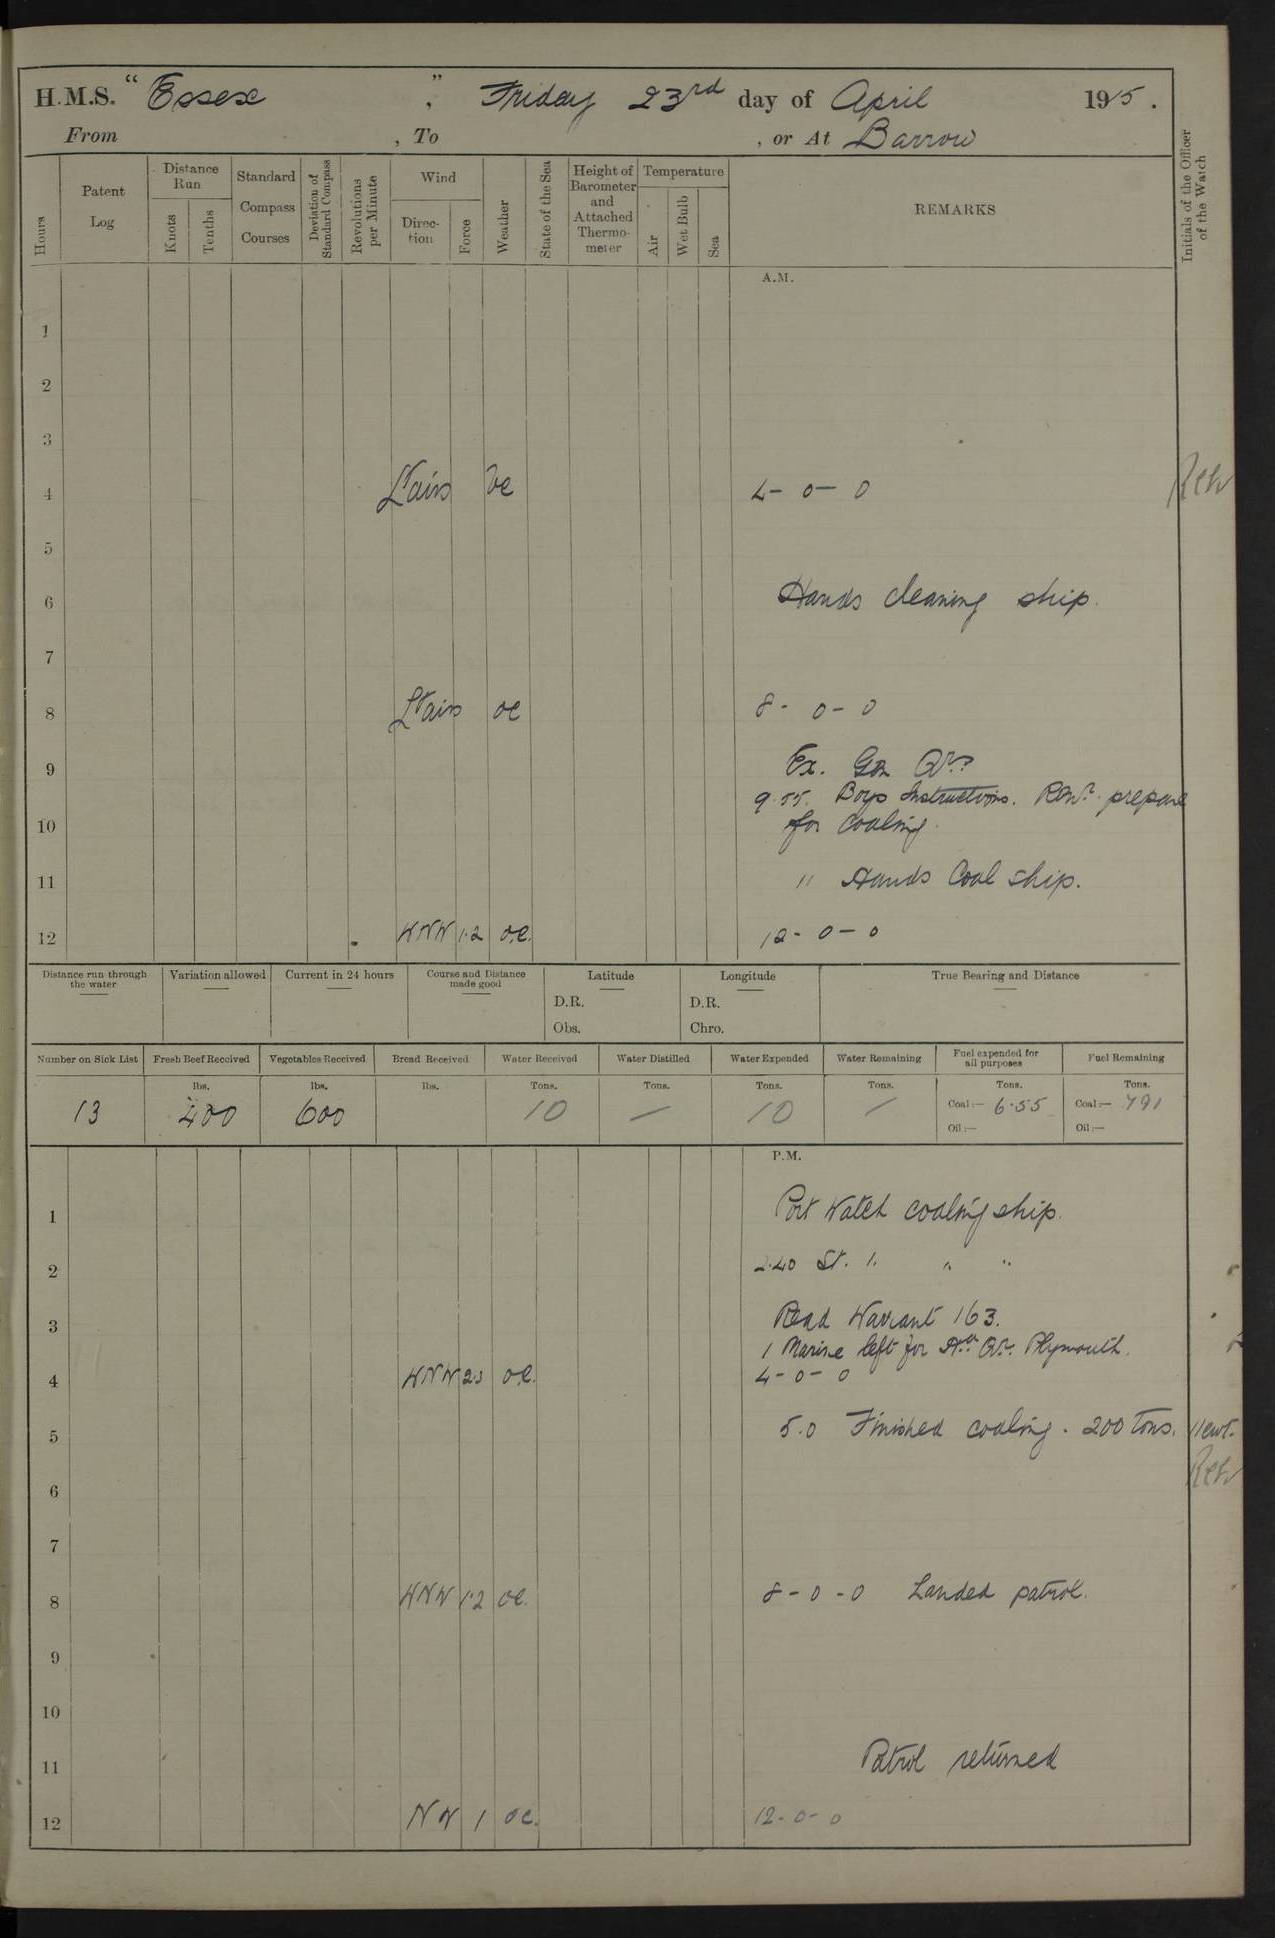 H.M.S. "Essex", Friday 23rd day of April 1915.
From , To , or At Barrow
Hours
Patent Log
Distance Run
Knots
Tenths
Standard Compass Courses
Deviation of Standard Compass
Revolutions per Minute
Wind
Direction
Force
Weather
State of the Sea
Height of Barometer and Attached Thermometer
Temperature
Air
Wet Bulb
Sea
REMARKS
Initials of the Officer of the Watch
A.M.
1
2
3
4 Lt airs bc 4-0-0
5
6 Hands cleaning ship.
7
8 Lt airs oc 8-0-0
9 Ex. Gen Qrs
9.55. Boys Instructions. Remr. prepare
10 for coaling.
11 " Hands Coal Ship.
12 WNW 1.2 o.c. 12-0-0
Distance run through the water
Variation allowed
Current in 24 hours
Course and Distance made good
Latitude
D.R.
Obs.
Longitude
D.R.
Chro.
True Bearing and Distance
Number on Sick List
13
Fresh Beef Received
lbs.
400
Vegetables Received
lbs.
600
Bread Received
lbs.
Water Received
Tons.
10
Water Distilled
Tons.
—
Water Expended
Tons.
10
Water Remaining
Tons.
—
Fuel expended for all purposes
Tons.
Coal:— 6.55
Oil:—
Fuel Remaining
Tons.
Coal:— 791
Oil:—
P.M.
1 Port Watch coaling ship.
2 2.40 St. " " "
3 Read Warrant 163.
1 Marine left for Hd Qrs. Plymouth.
4 WNW 2.3 o.c. 4-0-0
5 5.0 Finished coaling. 200 Tons. 11cwt.
6
7
8 WNW 1.2 oc. 8-0-0 Landed patrol.
9
10
11 Patrol returned
12 NW 1 oc. 12-0-0